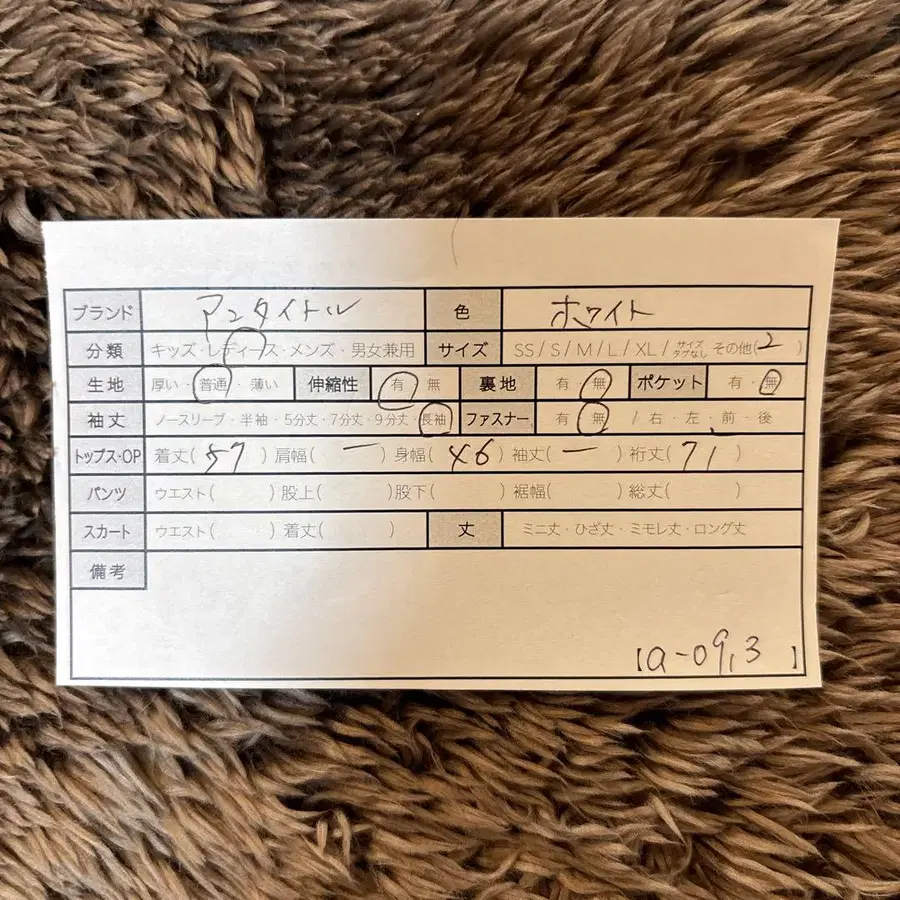 ブランド アンタイトル 色 ホワイト
分類 キッズ・レディース・メンズ・男女兼用 サイズ SS/S/M/L/XL/サイズタグなし その他(2)
生地 厚い・普通・薄い 伸縮性 有 無 裏地 有 無 ポケット 有・無
袖丈 ノースリーブ・半袖・5分丈・7分丈・9分丈・長袖 ファスナー 有 無 / 右・左・前・後
トップス・OP 着丈(57) 肩幅(ー) 身幅(46) 袖丈(ー) 裄丈(71)
パンツ ウエスト( ) 股上( ) 股下( ) 裾幅( ) 総丈( )
スカート ウエスト( ) 着丈( ) 丈 ミニ丈・ひざ丈・ミモレ丈・ロング丈
備考
【a-09,3 】